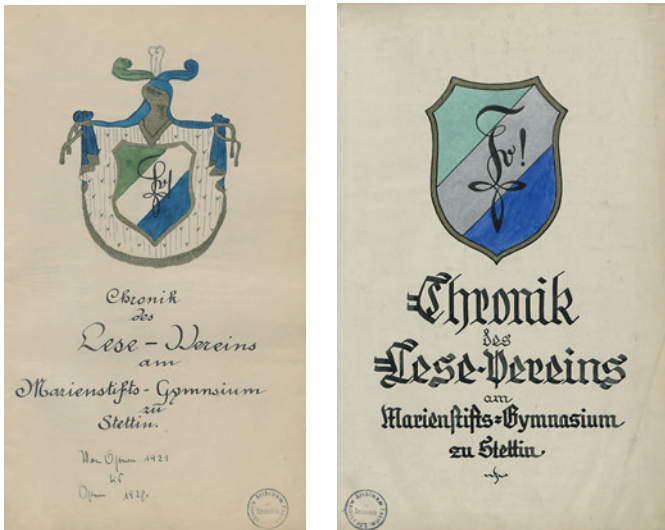 Chronik
des
Lese-Vereins
am
Marienstifts-Gymnasium
zu
Stettin.
Von Ostern 1921
bis
Ostern 1928.
Chronik
des
Lese-Vereins
am
Marienstifts-Gymnasium
zu Stettin